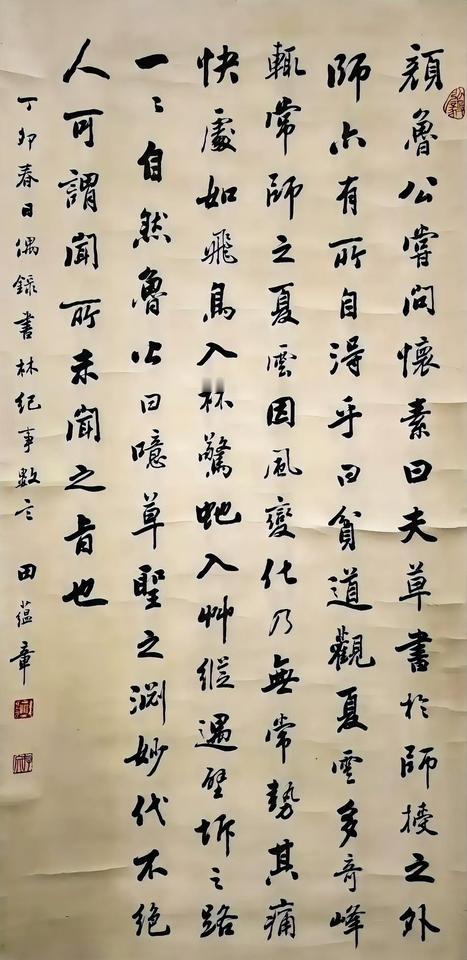 顔魯公嘗問懷素曰夫草書於師授之外
師亦有所自得乎曰貧道觀夏雲多奇峰
輒常師之夏雲因風變化乃無常勢其痛
快處如飛鳥入林驚虵入艸縱遇壁坼之路
一〻自然魯公曰噫草聖之淵妙代不絶
人可謂聞所未聞之旨也
丁卯春日偶錄書林紀事數言 田蘊章